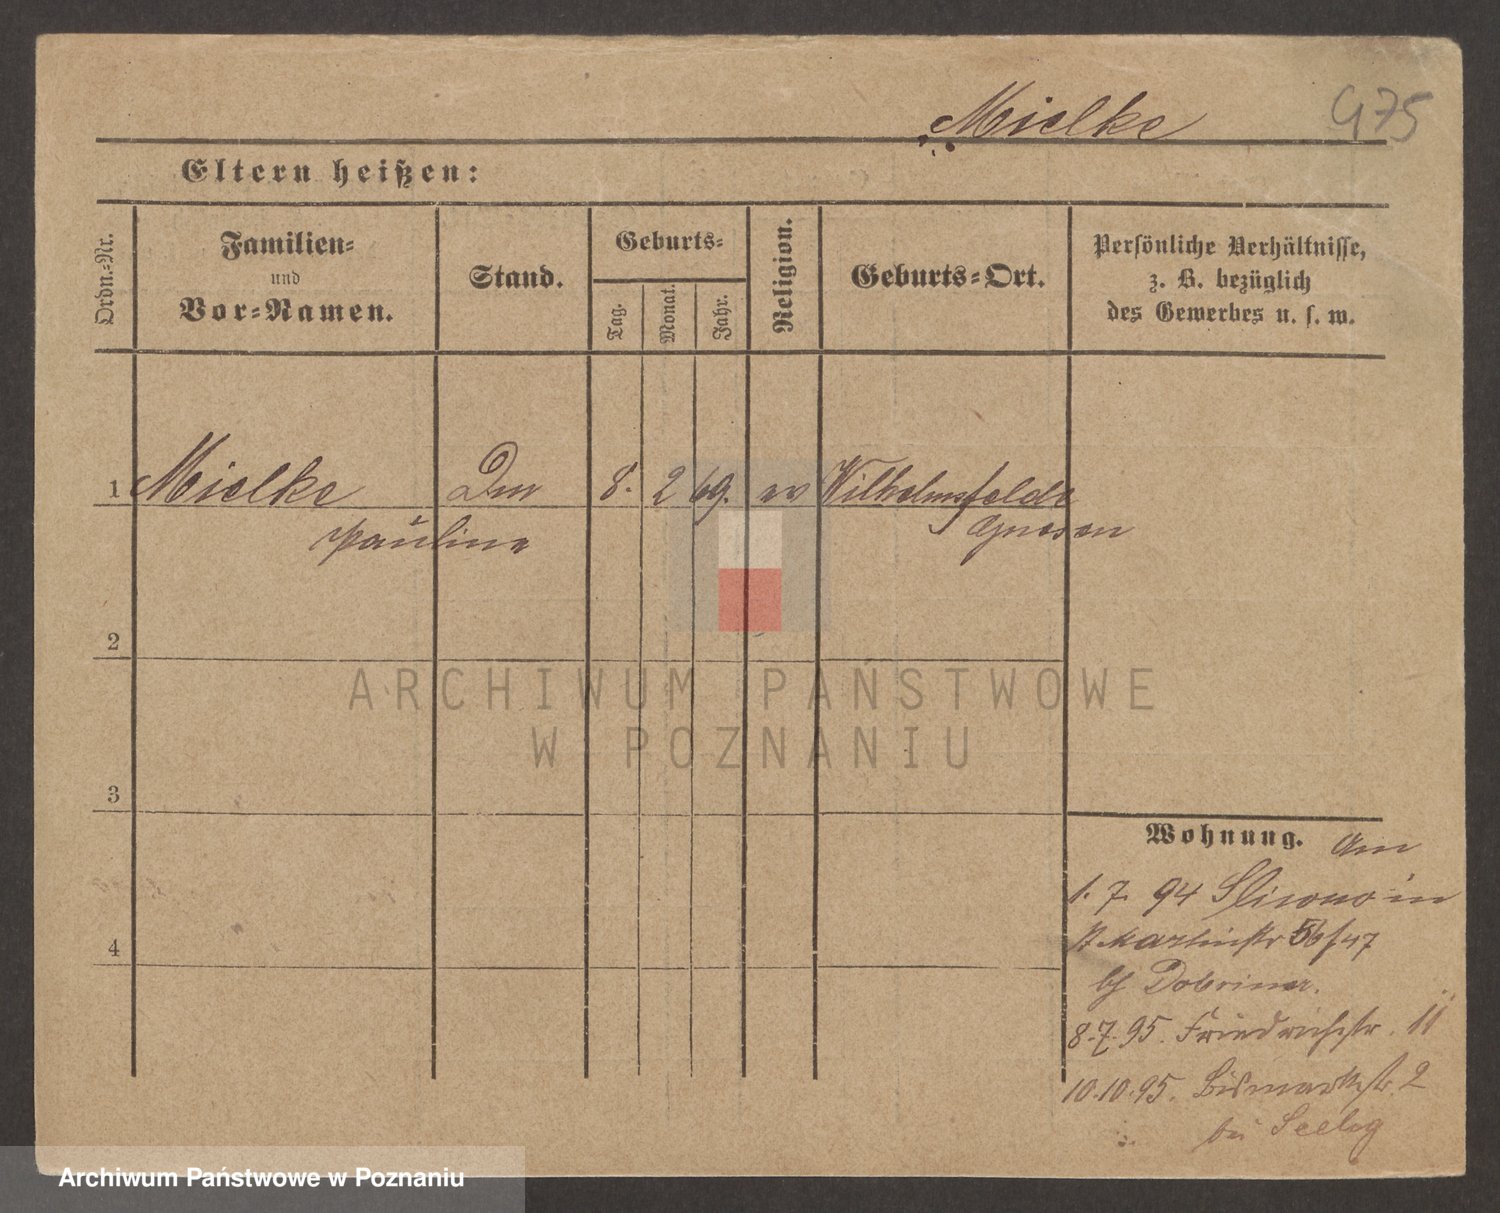 Mielke
475
Eltern heißen:
Ordn.-Nr.
Familien-
und
Vor-Namen.
Stand.
Geburts-
Tag.
Monat.
Jahr.
Religion.
Geburts-Ort.
Persönliche Verhältnisse,
z. B. bezüglich
des Gewerbes u. s. w.
1 Mielke 8. 2 69. ev Wilhelmsfelde
Pauline Gnesen
2
3
4
ARCHIWUM PAŃSTWOWE
W POZNANIU
Wohnung. am
1. 7. 94 in
St Martinstr 56/47
bei Dobriner.
8.7.95. Friedrichstr. 11
10.10.95. Bismarckstr. 2
bei Seelog
Archiwum Państwowe w Poznaniu